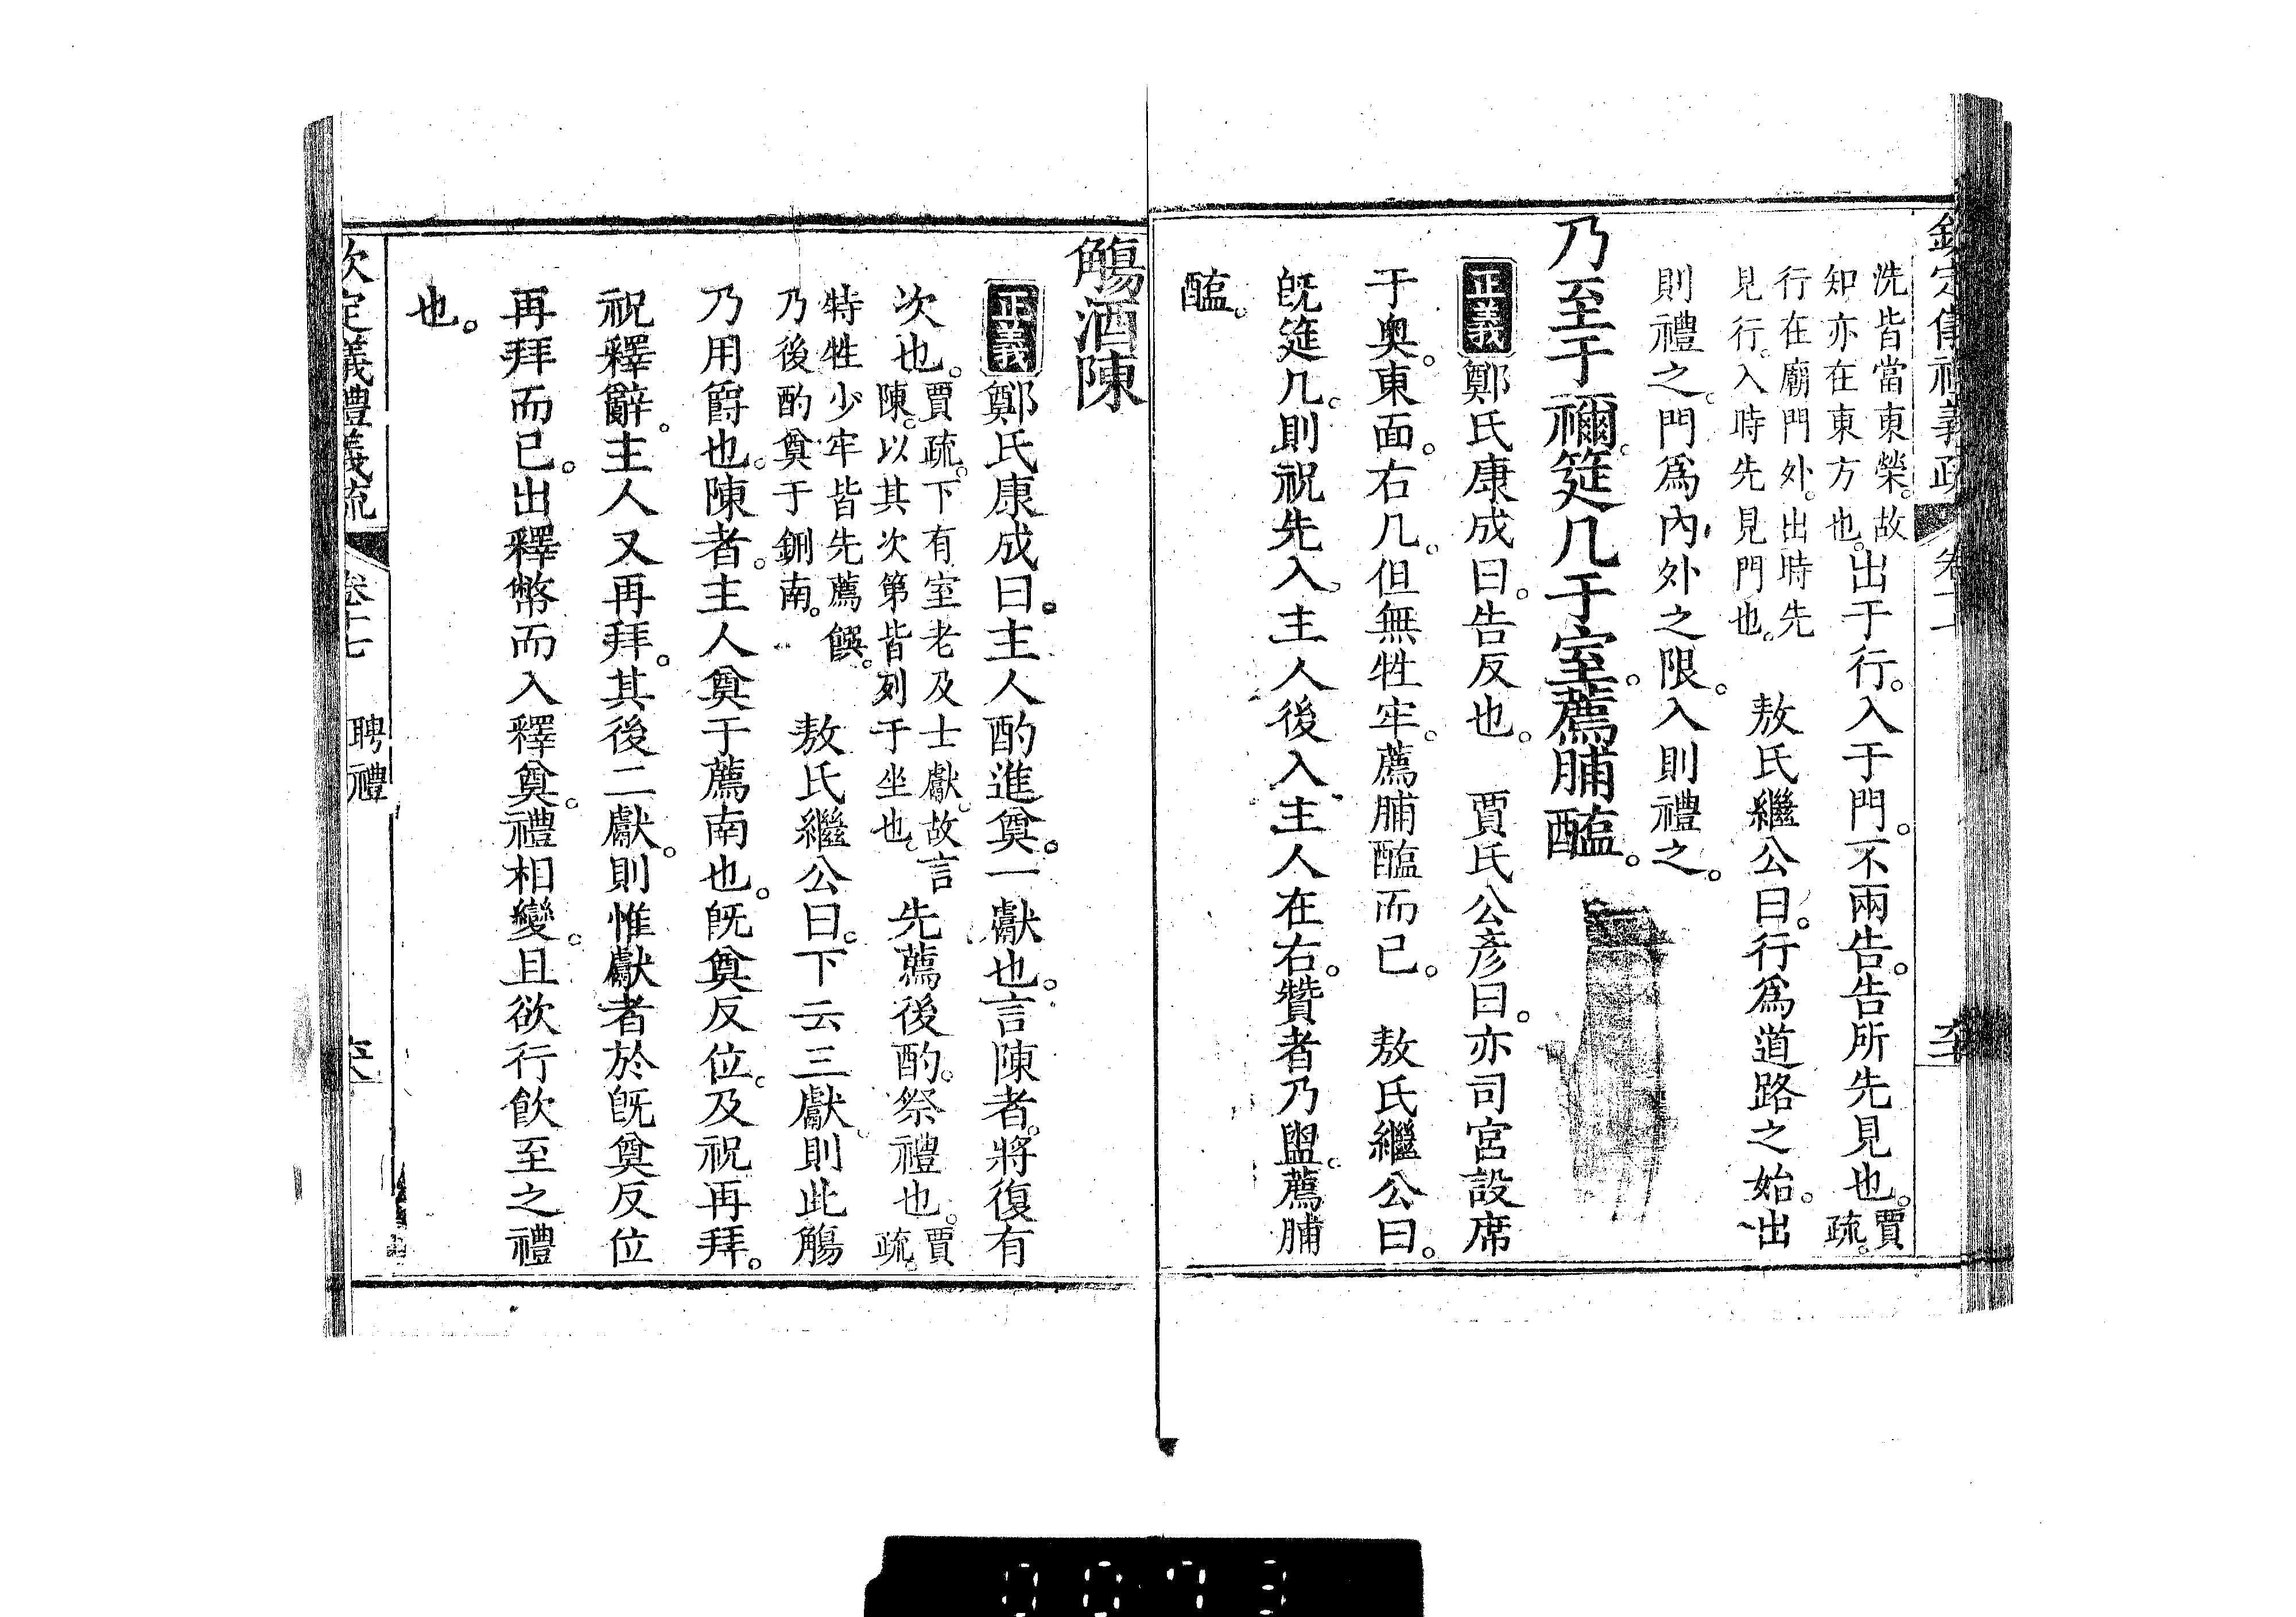 洗皆當東榮。故
知亦在東方也。出于行。入于門。不兩告。告所先見也。賈
疏。
行在廟門外。出時先
見行。入時先見門也。敖氏繼公曰。行爲道路之始。出
則禮之。門爲內外之限。入則禮之。
乃至于禰。筵几于室。薦脯醢。
正義鄭氏康成曰。告反也。 賈氏公彥曰。亦司宮設席
于奧。東面。右几。但無牲牢。薦脯醢而已。 敖氏繼公曰。
旣筵几。則祝先入。主人後入。主人在右。贊者乃盥。薦脯
醢。
觴酒陳
正義鄭氏康成曰。主人酌進奠。一獻也。言陳者。將復有
次也。賈疏。下有室老及士獻。故言
陳。以其次第皆列于坐也。先薦後酌。祭禮也。賈
疏。
特牲少牢皆先薦饌。
乃後酌奠于鉶南。 敖氏繼公曰。下云三獻。則此觴
乃用爵也。陳者。主人奠于薦南也。旣奠反位。及祝再拜。
祝釋辭。主人又再拜。其後二獻。則惟獻者於旣奠反位
再拜而已。出釋幣而入釋奠。禮相變。且欲行飮至之禮
也。
欽定儀禮義疏 卷十七 聘禮